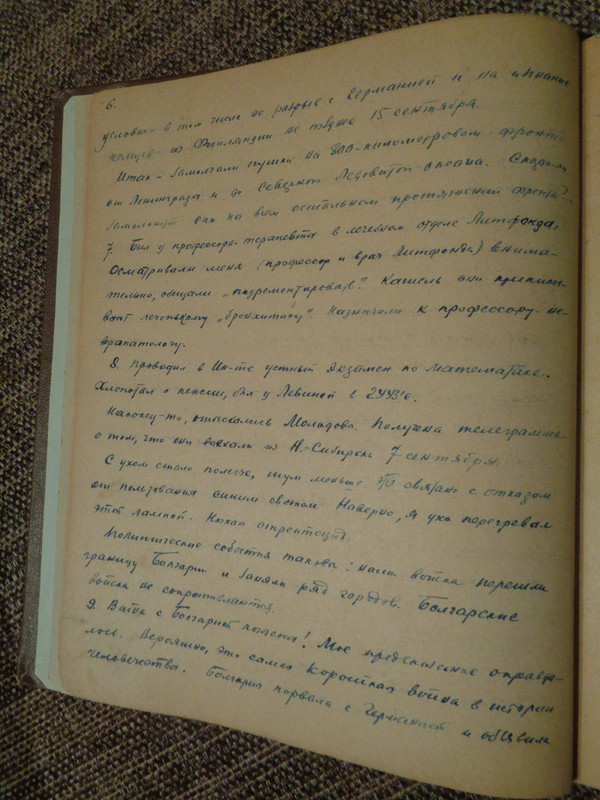 6.
условия - в том числе на разрыв с Германией и на изгнание
немцев из Финляндии не позже 15 сентября.
Итак - замолчали пушки на 800-километровом фронте
от Ленинграда и до Северного Ледовитого океана. Скоро ли
замолчат они на всем остальном протяжении фронта?...
7. Был у профессора-терапевта в лечебном отделе Литфонда.
Осматривали меня (профессор и врач Литфонда) внима-
тельно, обещали "подремонтировать". Кашель они приписы-
вают легонькому "бронхитику". Назначили к профессору-не-
врапатологу.
8. Проводил в Ин-те устный экзамен по математике.
Хлопотал о пенсии, был у Левиной в
Наконец-то, отыскались Молодова. Получена телеграмма
о том, что они выехали из Н.-Сибирска 7 сентября.
С ухом стало полегче, шум меньше. Это связано с отказом
от пользования синим светом. Наверно, я ухо перегревал
этой лампой. Нюхаю стрептоцид.
Политические события таковы: наши войска перешли
границу Болгарии и заняли ряд городов. Болгарские
войска не сопротивляются.
9. Война с Болгарией кончена! Мое предсказание оправда-
лось. Вероятно, это самая короткая война в истории
человечества. Болгария порвала с Германией и объявила